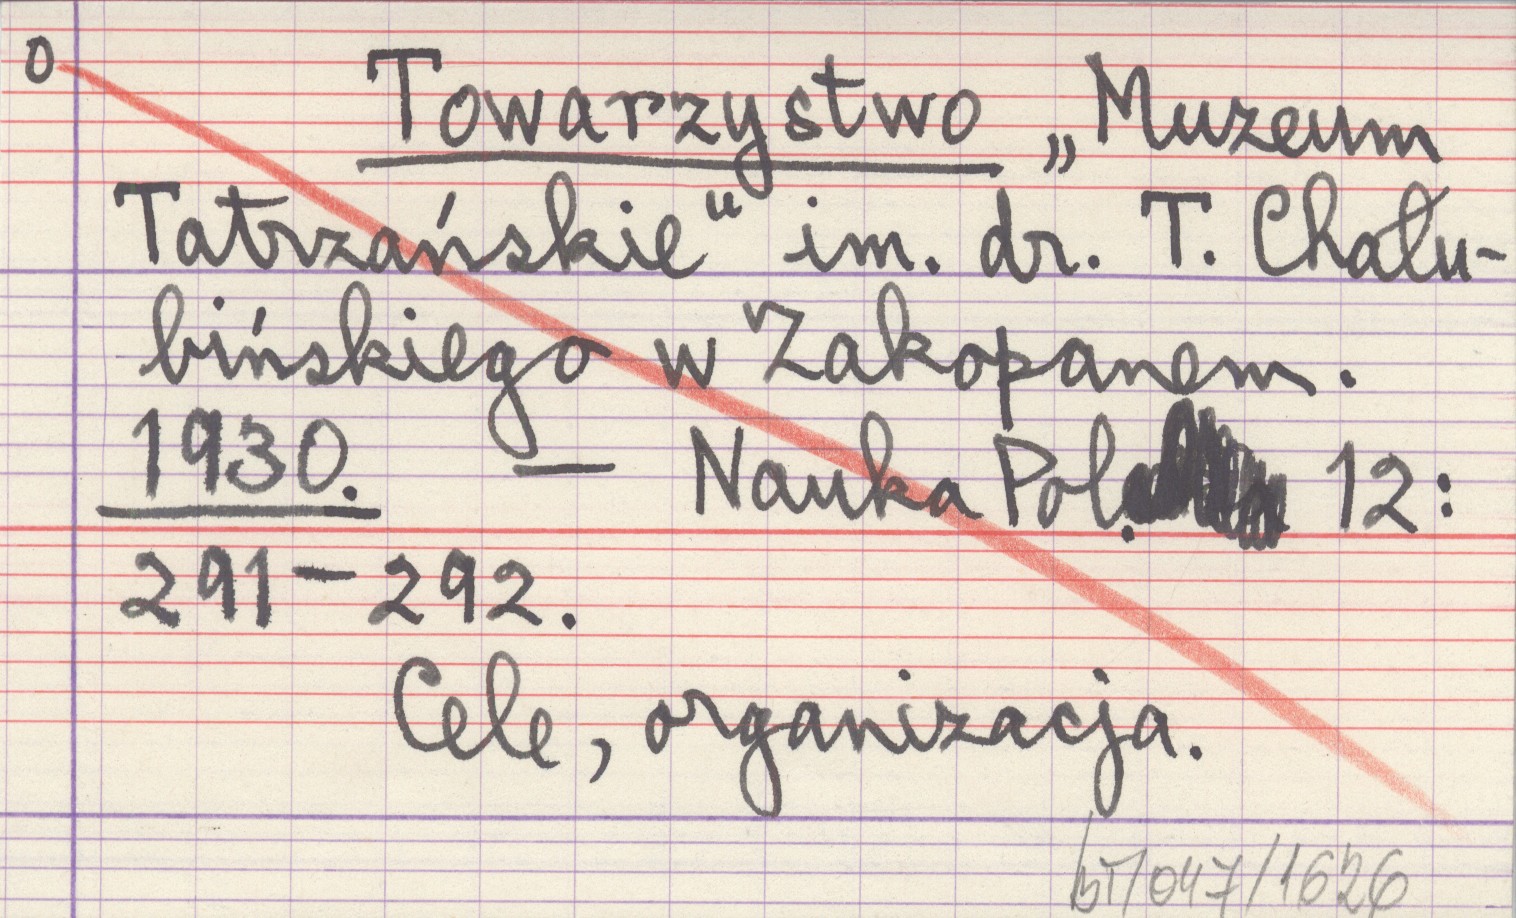 0 Towarzystwo „Muzeum
Tatrzańskie" im. dr. T. Chału-
bińskiego w Zakopanem.
1930. — Nauka Pol. 12:
291-292.
Cele, organizacja.
BT/047/1626